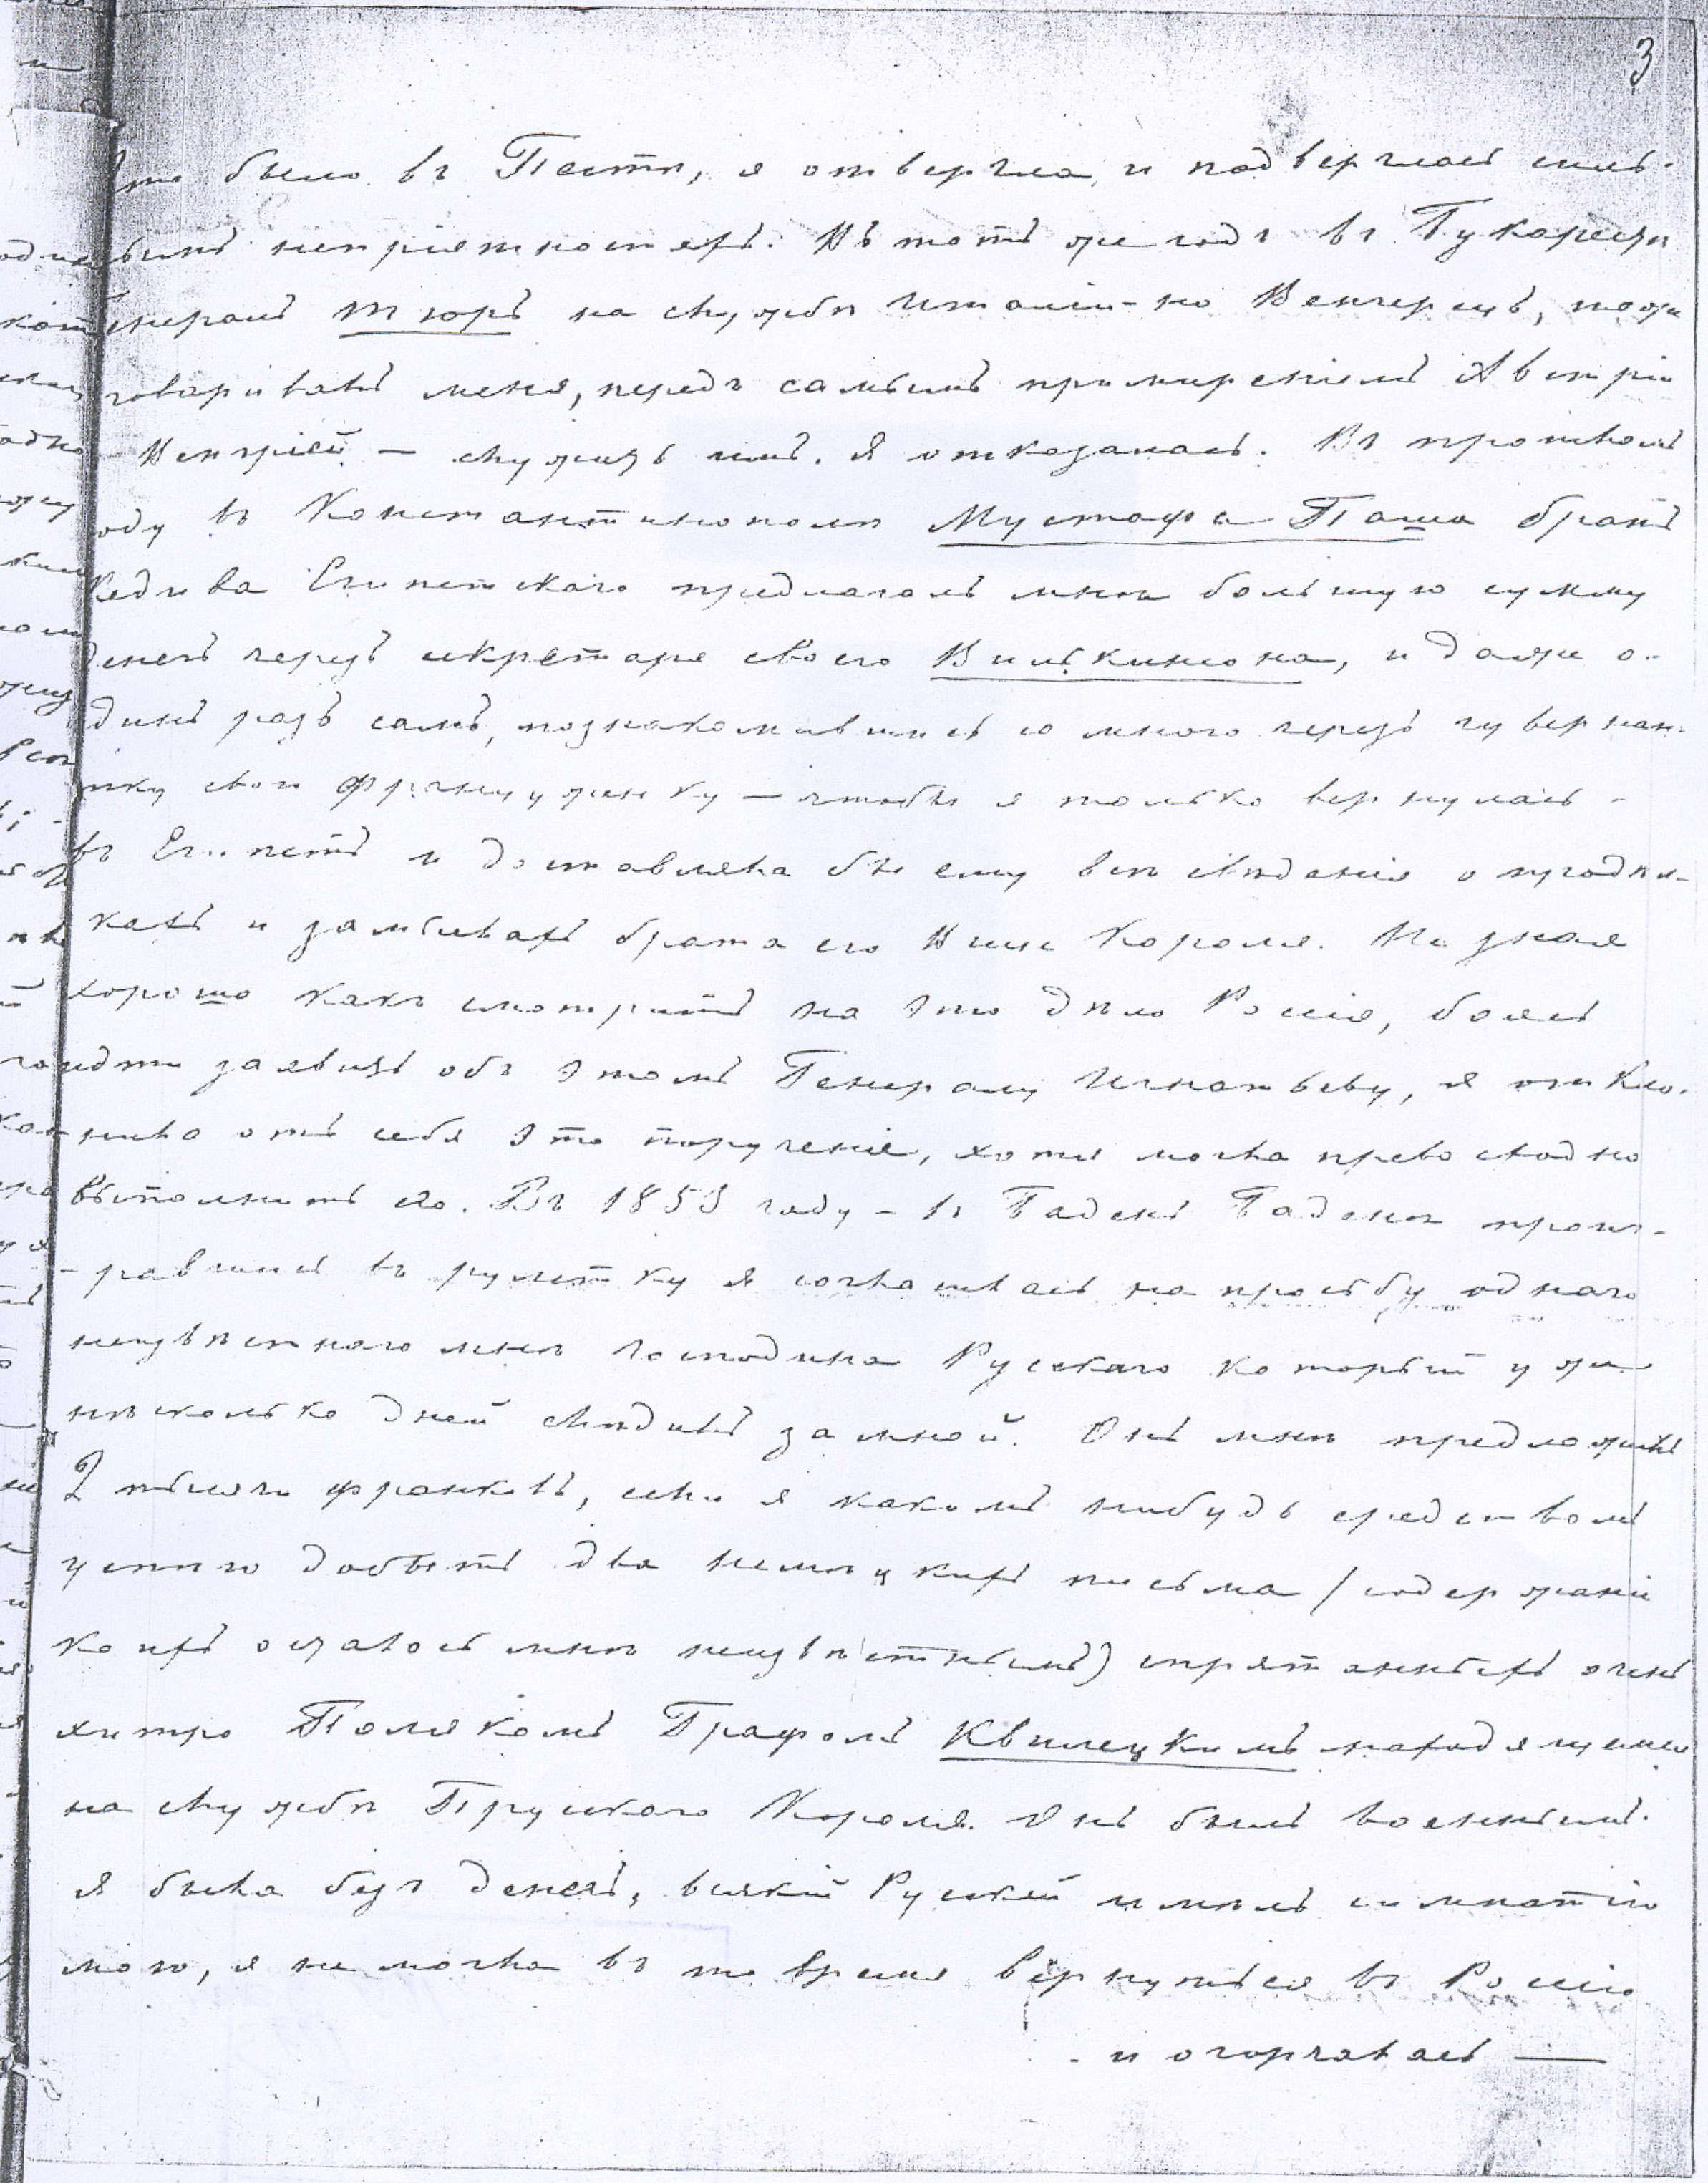 3
Это было въ Пестѣ, я отвергла, и подверглась силь-
нымъ непріятностямъ. Въ тотъ же годъ въ Букарестѣ
Генералъ Тюръ на службѣ Италіи – но Венгерецъ, тоже
уговаривалъ меня, передъ самымъ примиреніемъ Австріи
съ Венгріей – служить имъ. Я отказалась. Въ прошломъ
году въ Константинополѣ Мустафа Паша братъ
Кедива Египетскаго предлагалъ мнѣ большую сумму
денегъ черезъ секретаря своего Вилькинсона, и даже о-
динъ разъ самъ, познакомившись со мною черезъ гувернан-
тку свою Француженку – чтобы я только вернулась
въ Египетъ и доставляла бы ему всѣ свѣденія о
и замыслахъ брата его Вице Короля. Не зная
хорошо какъ смотритъ на это дѣло Россія, боясь
идти заявить объ этомъ Генералу Игнатьеву, я откло-
нила отъ себя это порученіе, хотя могла превосходно
выполнить его. Въ 1853 году – въ Баденъ Баденѣ проиг-
равшись въ рулетку я согласилась на просьбу однаго
неизвѣстнаго мнѣ господина Рускаго который уже
нѣсколько дней слѣдилъ за мной. Онъ мнѣ предложилъ
2 тысячи франковъ, если я какимъ нибудь средствомъ
успѣю добыть два немецкихъ письма /содержаніе
коихъ осталось мнѣ неизвѣстнымъ) спрятанныхъ очень
хитро Полякомъ Графомъ Квилецкимъ находящимся
на службѣ Прускаго Короля. Онъ былъ военнымъ.
Я была безъ денегъ, всякій Рускій имѣлъ симпатію
мою, я не могла въ то время вернуться въ Россію
и огорчалась —